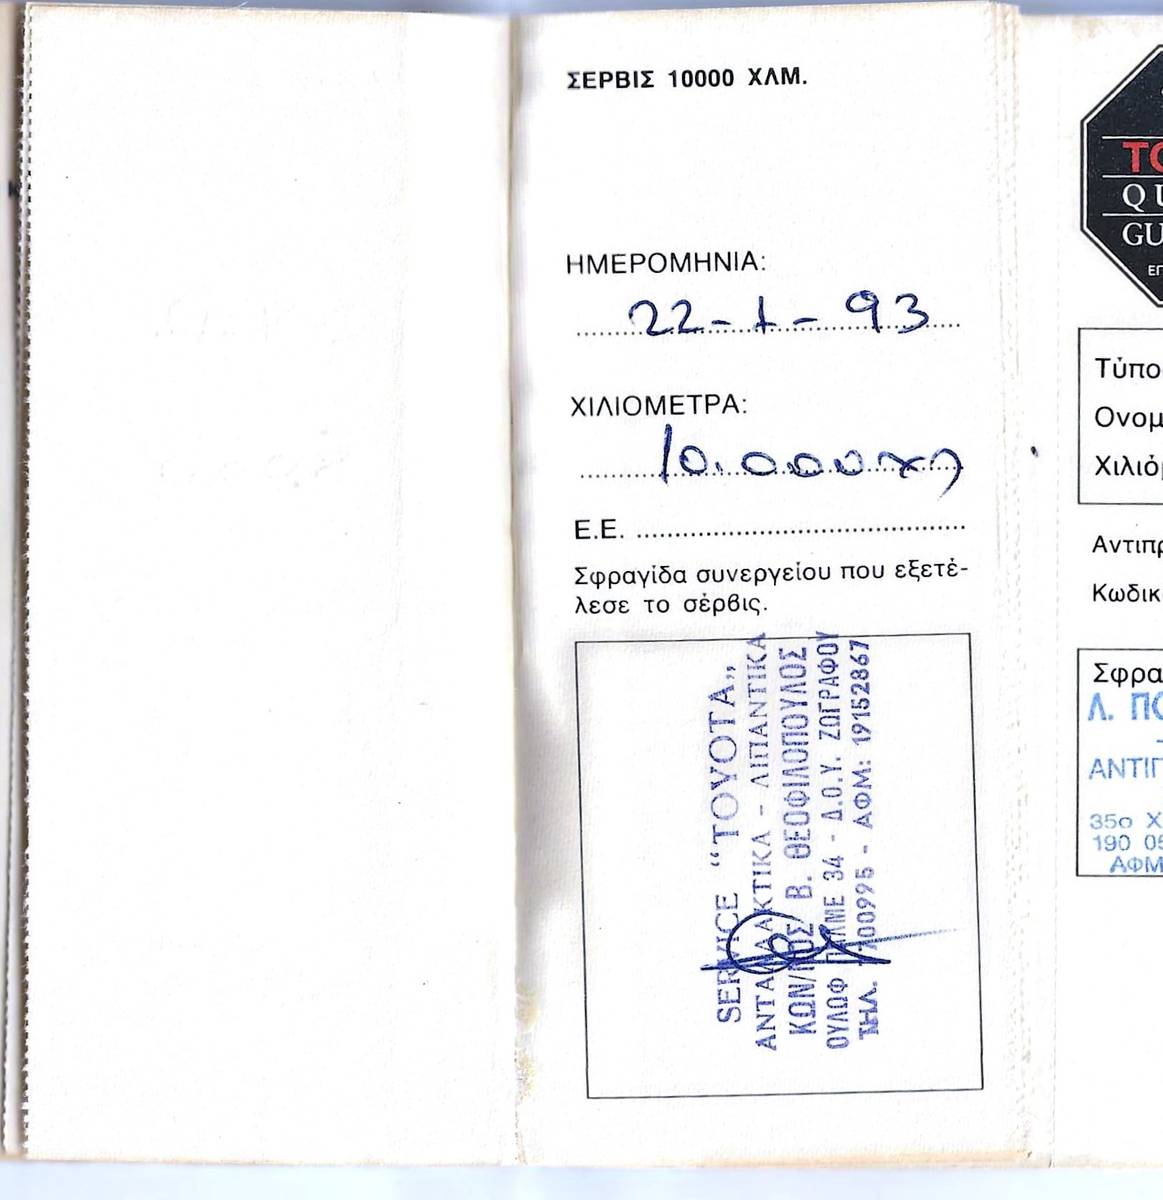 ΣΕΡΒΙΣ 10000 ΧΛΜ.
ΗΜΕΡΟΜΗΝΙΑ:
22-1-93
ΧΙΛΙΟΜΕΤΡΑ:
10.000 χλ
Ε.Ε.
Σφραγίδα συνεργείου που εξετέ-
λεσε το σέρβις.
SERVICE "TOYOTA,,
ΑΝΤΑΛΛΑΚΤΙΚΑ - ΛΙΠΑΝΤΙΚΑ
ΚΩΝ/ΝΟΣ Β. ΘΕΟΦΙΛΟΠΟΥΛΟΣ
ΟΥΛΩΦ ΠΑΛΜΕ 34 - Δ.Ο.Υ. ΖΩΓΡΑΦΟΥ
ΤΗΛ. 7700995 - ΑΦΜ: 19152867
TO
QU
GU
ΕΠ
Τύπο
Ονομ
Χιλιόμ
Αντιπρ
Κωδικ
Σφρα
Λ. ΠΟ
ΑΝΤΙΠ
35ο Χ
190 05
ΑΦΜ